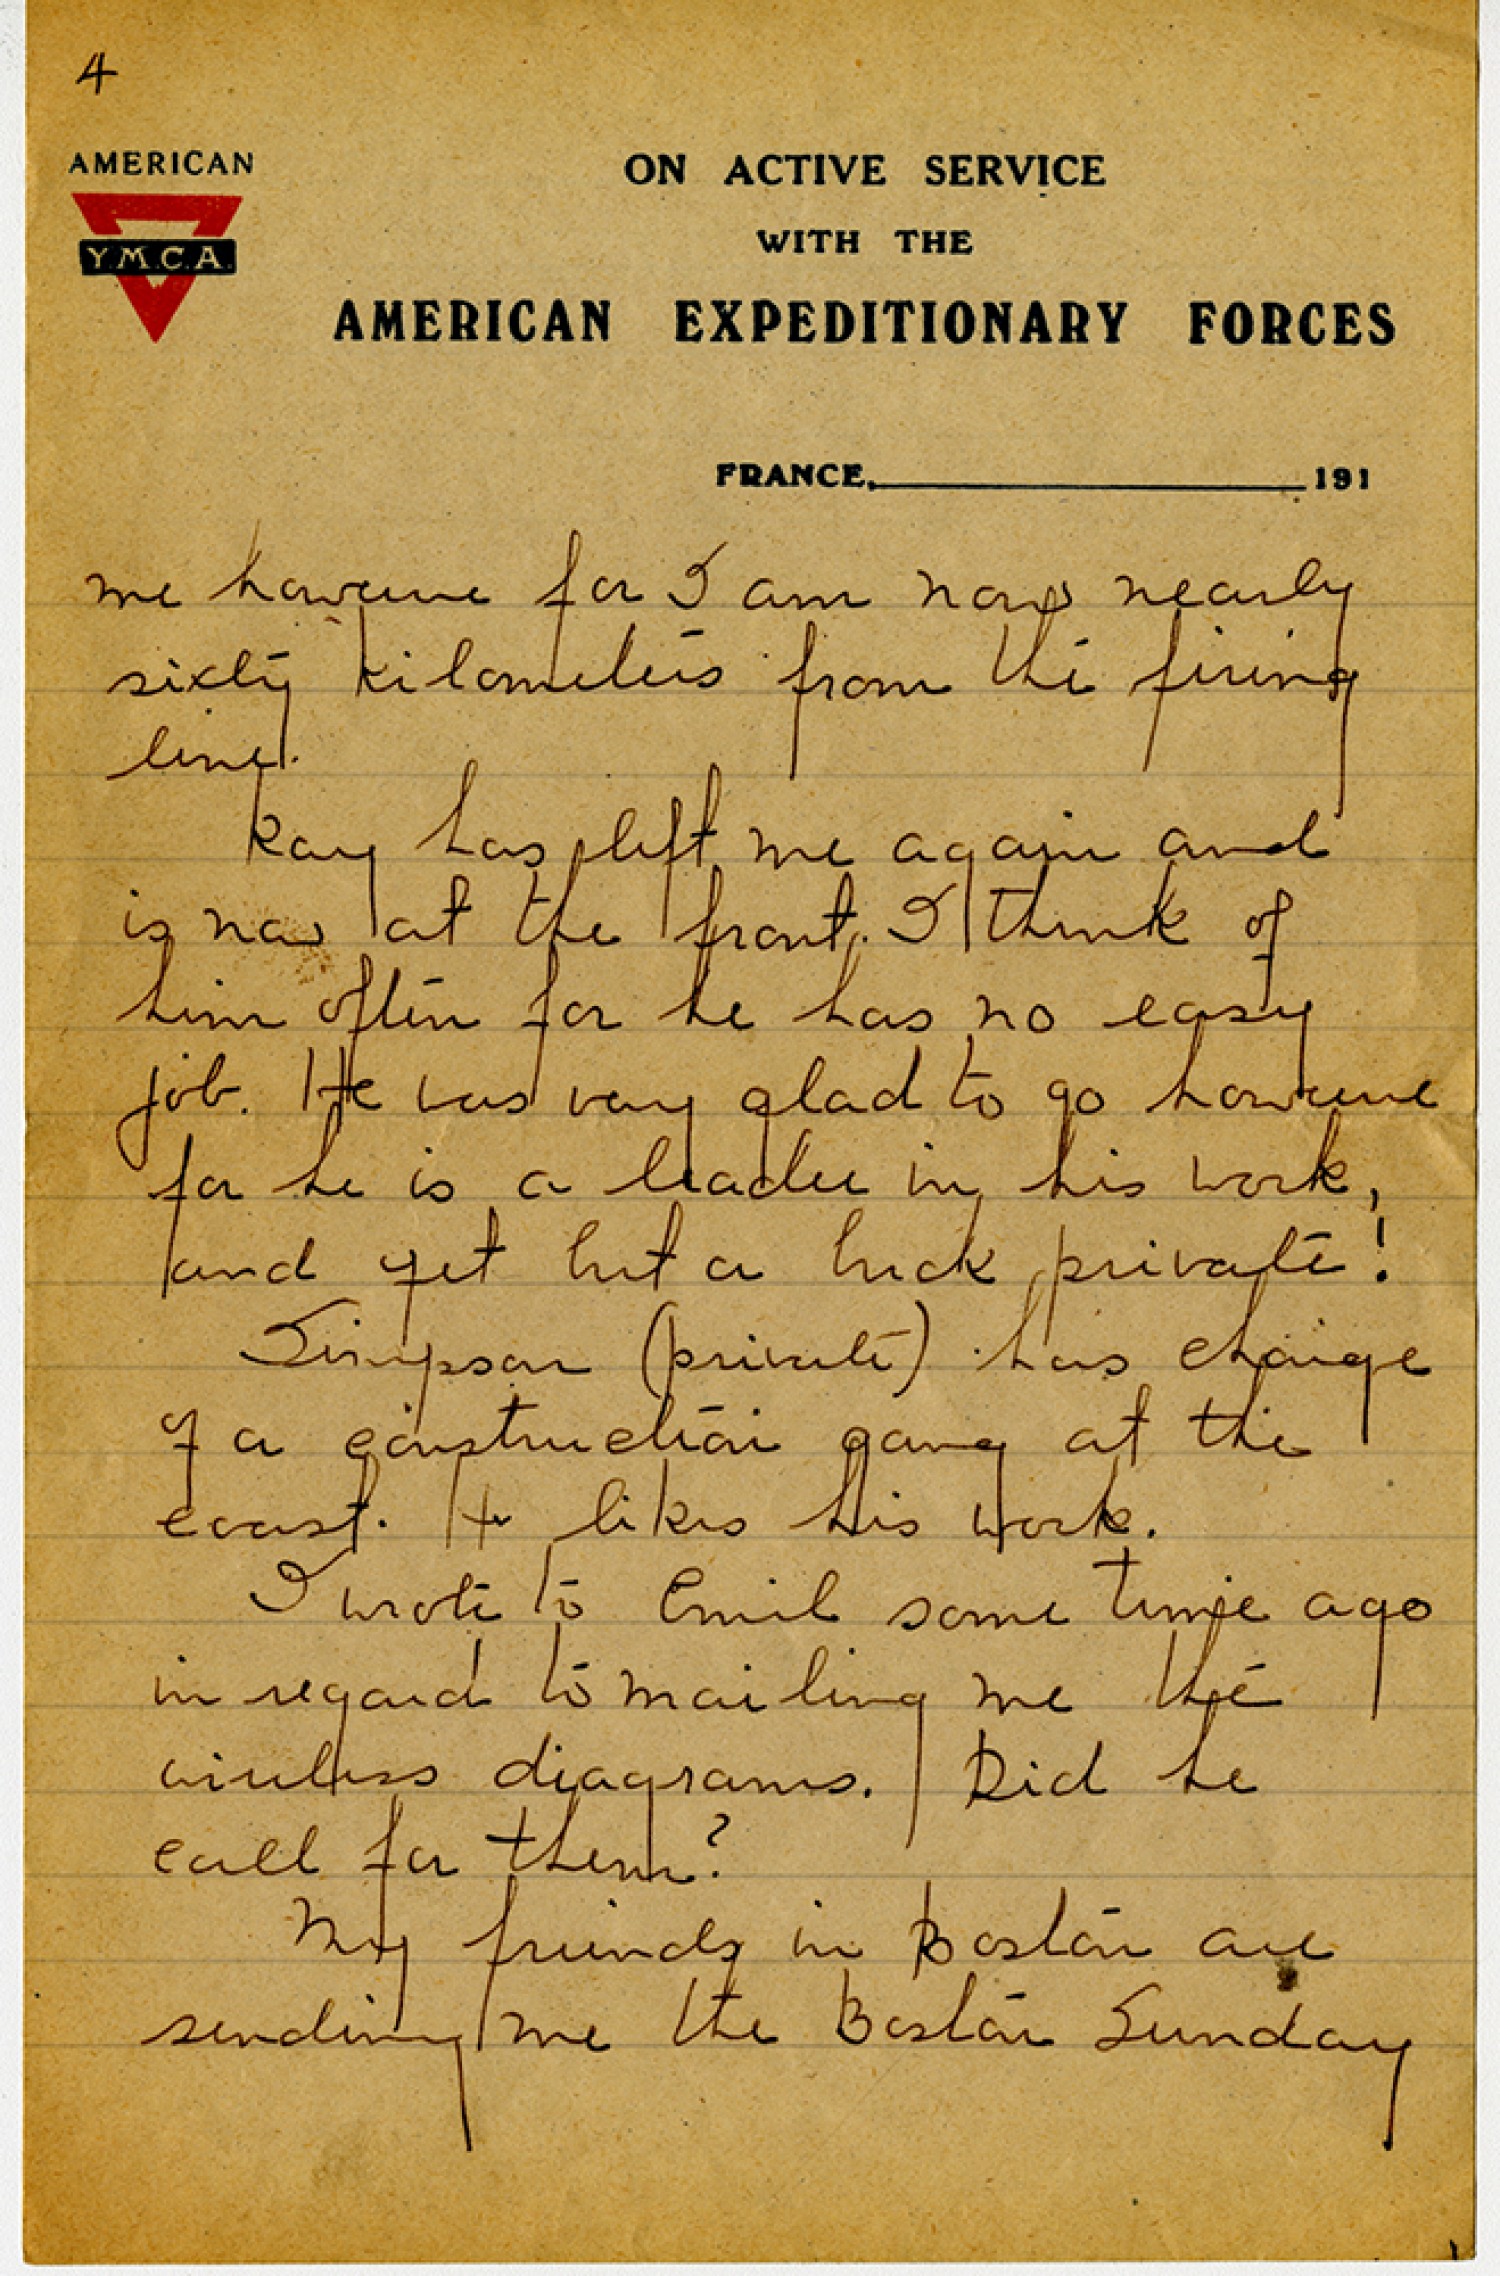 4
AMERICAN
Y.M.C.A.
ON ACTIVE SERVICE
WITH THE
AMERICAN EXPEDITIONARY FORCES
FRANCE, 191
me however for I am now nearly
sixty kilometers from the firing
line.
Kay has left me again and
is now at the front. I think of
him often for he has no easy
job. He was very glad to go however
for he is a leader in his work,
and yet but a buck private!
Simpson (private) has charge
of a construction gang at the
coast. He likes his work.
I wrote to Emil some time ago
in regard to mailing me the
wireless diagrams. Did he
call for them?
My friends in Boston are
sending me the Boston Sunday